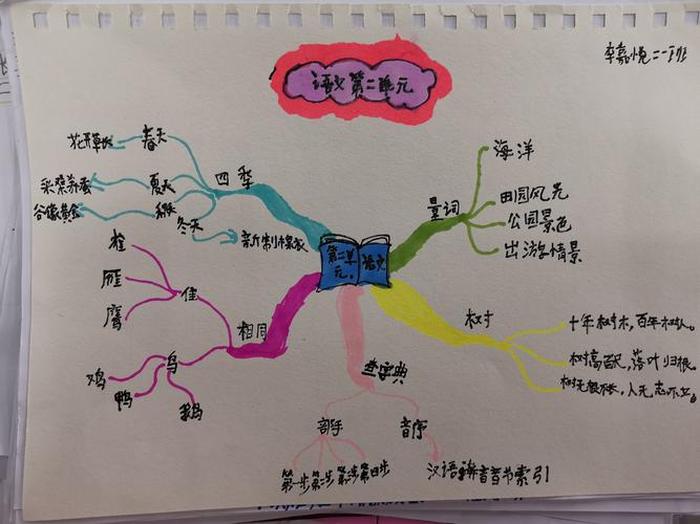 李嘉悦二一班
语文第二单元
第二单元。
语文
四季
春天
花开草长
夏天
采桑养蚕
秋天
谷像黄金
冬天
新制棉衣
量词
海洋
田园风光
公园景色
出游情景
相同
隹
雀
雁
鹰
鸟
鸡
鸭
鹅
树
十年树木，百年树人。
树高百尺，落叶归根。
树无根不长，人无志不立。
查字典
部首
第一步第二步第三步第四步
音序
汉语拼音音节索引